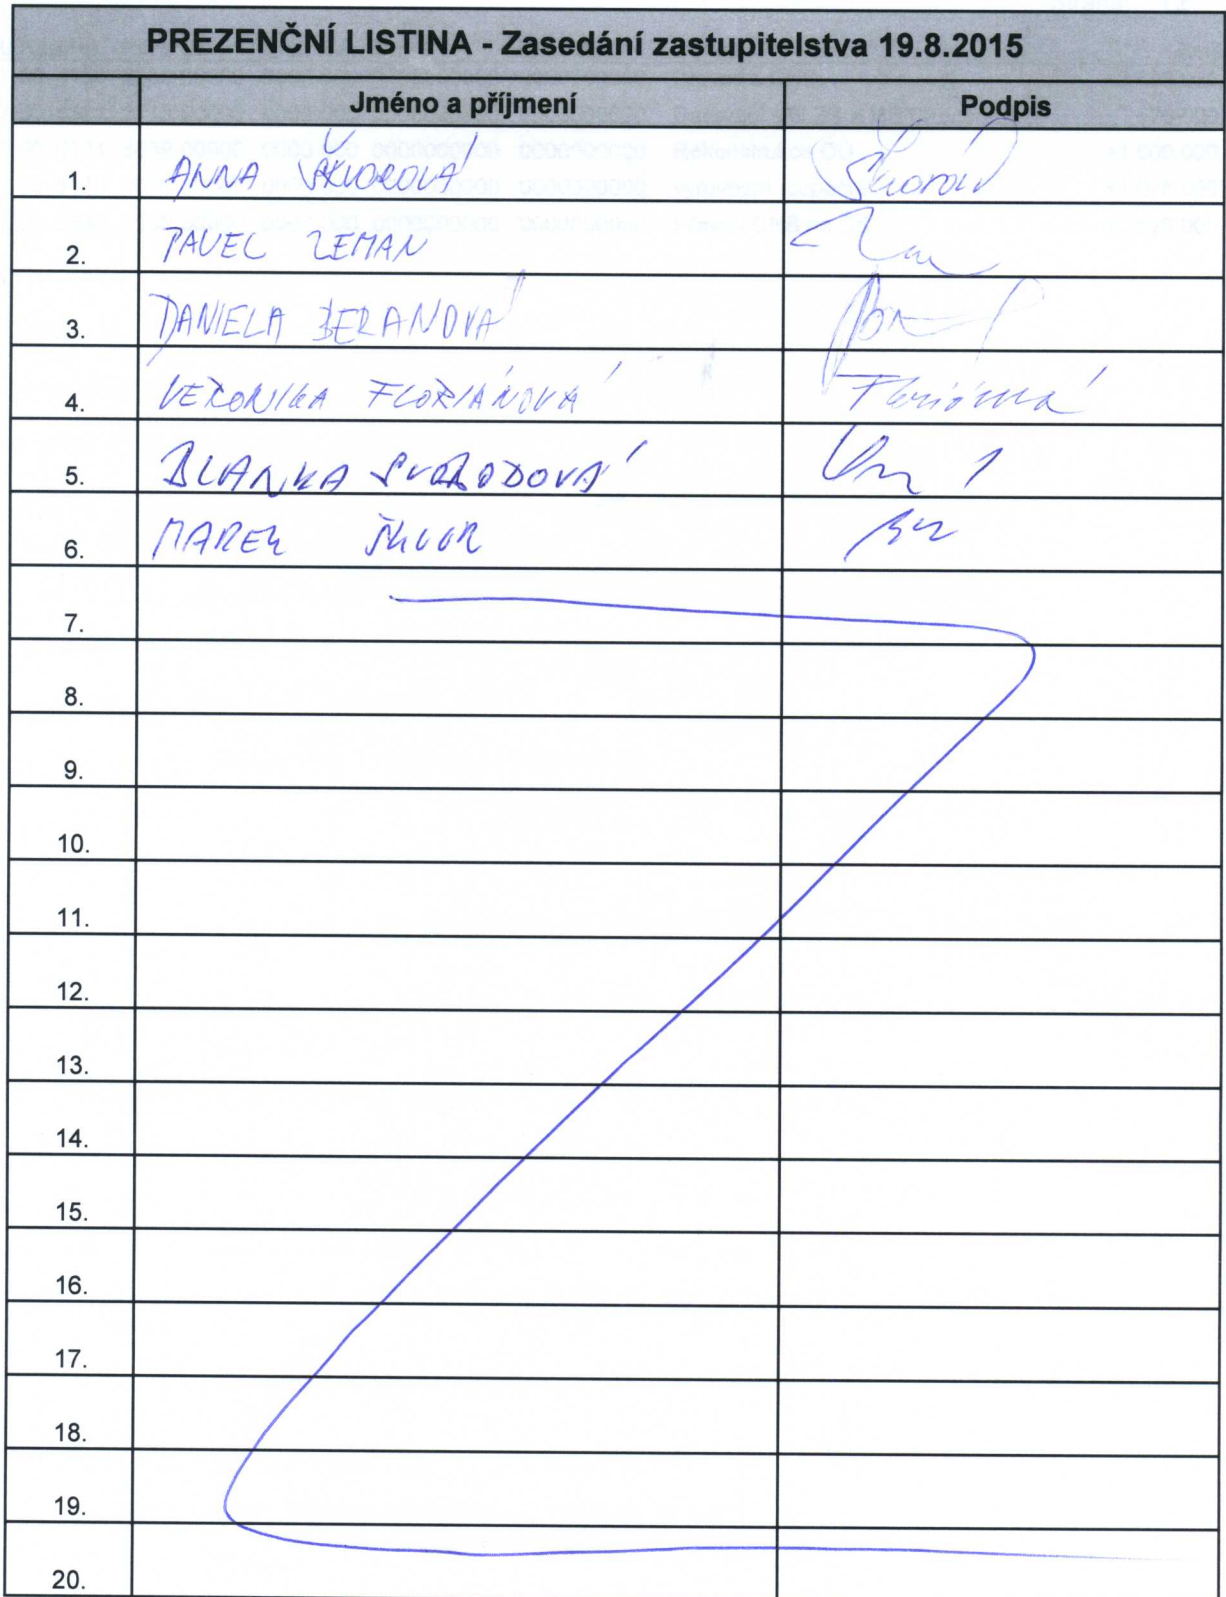 PREZENČNÍ LISTINA - Zasedání zastupitelstva 19.8.2015
Jméno a příjmení Podpis
1. ANNA ŠKVOROVÁ
2. PAVEL ZEMAN
3. DANIELA BERANOVÁ
4. VERONIKA FLORIÁNOVÁ Floriánová
5. BLANKA SVOBODOVÁ
6. MAREK ŠKVOR
7.
8.
9.
10.
11.
12.
13.
14.
15.
16.
17.
18.
19.
20.